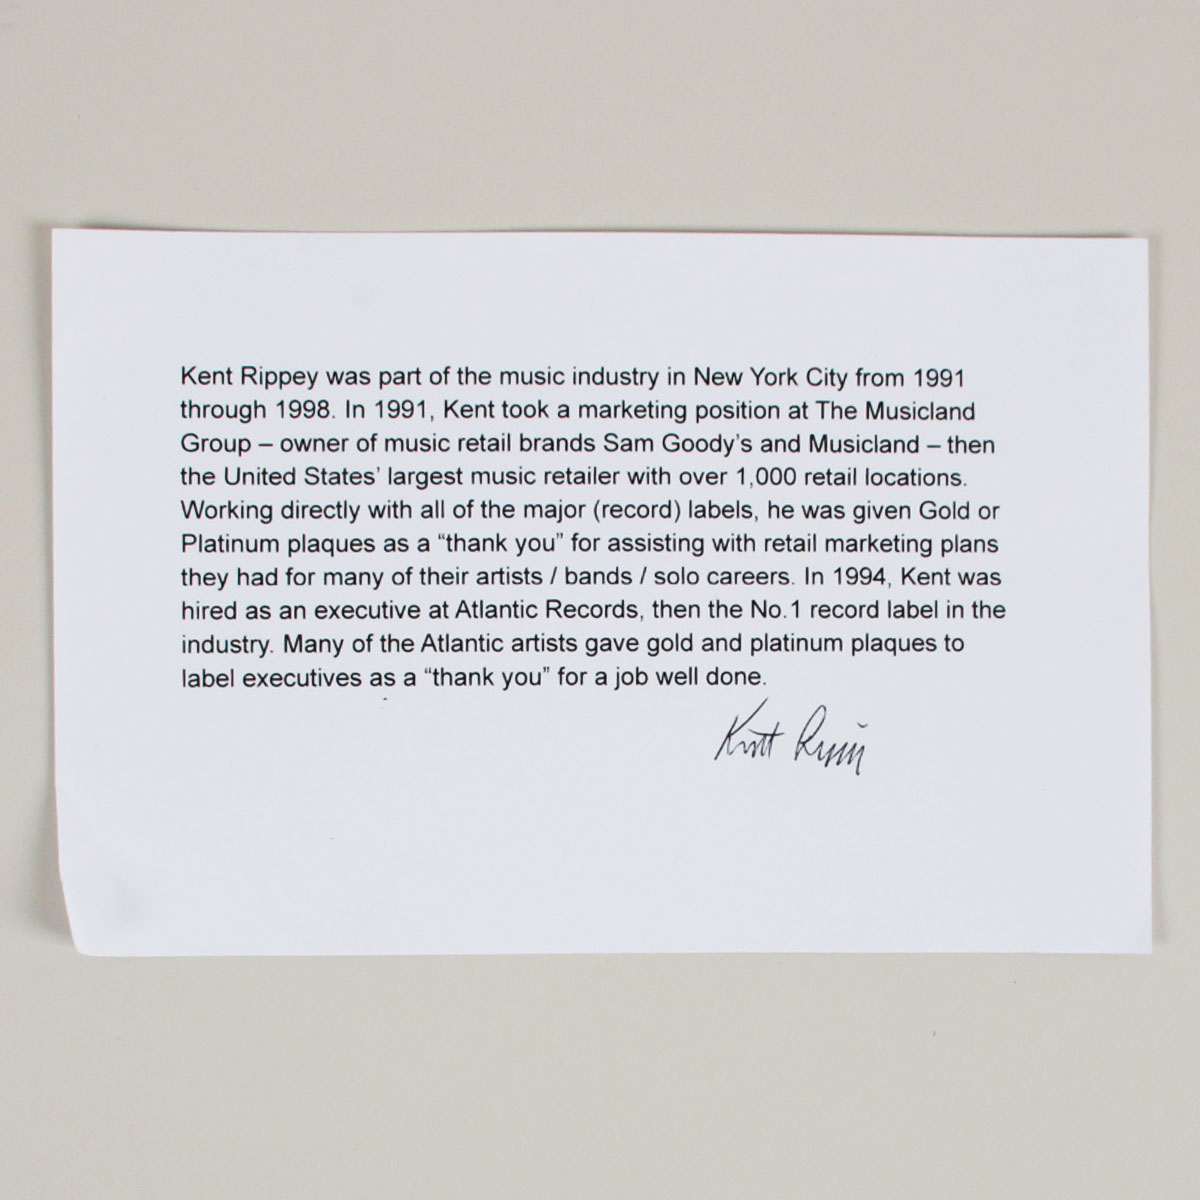 Kent Rippey was part of the music industry in New York City from 1991
through 1998. In 1991, Kent took a marketing position at The Musicland
Group – owner of music retail brands Sam Goody’s and Musicland – then
the United States’ largest music retailer with over 1,000 retail locations.
Working directly with all of the major (record) labels, he was given Gold or
Platinum plaques as a “thank you” for assisting with retail marketing plans
they had for many of their artists / bands / solo careers. In 1994, Kent was
hired as an executive at Atlantic Records, then the No.1 record label in the
industry. Many of the Atlantic artists gave gold and platinum plaques to
label executives as a “thank you” for a job well done.